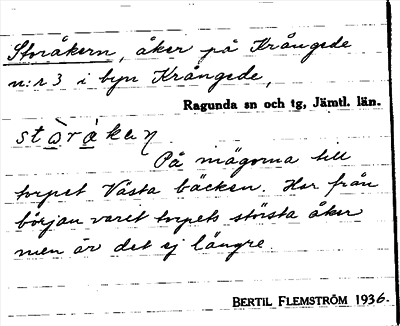 Storåkern, åker på Krångede
n:r 3 i byn Krångede,
Ragunda sn och tg, Jämtl. län.
stòràkeɳ
På mägorna till
torpet Västa bäcken. Har från
början varit torpets största åker
men är det ej längre.
BERTIL FLEMSTRÖM 1936.